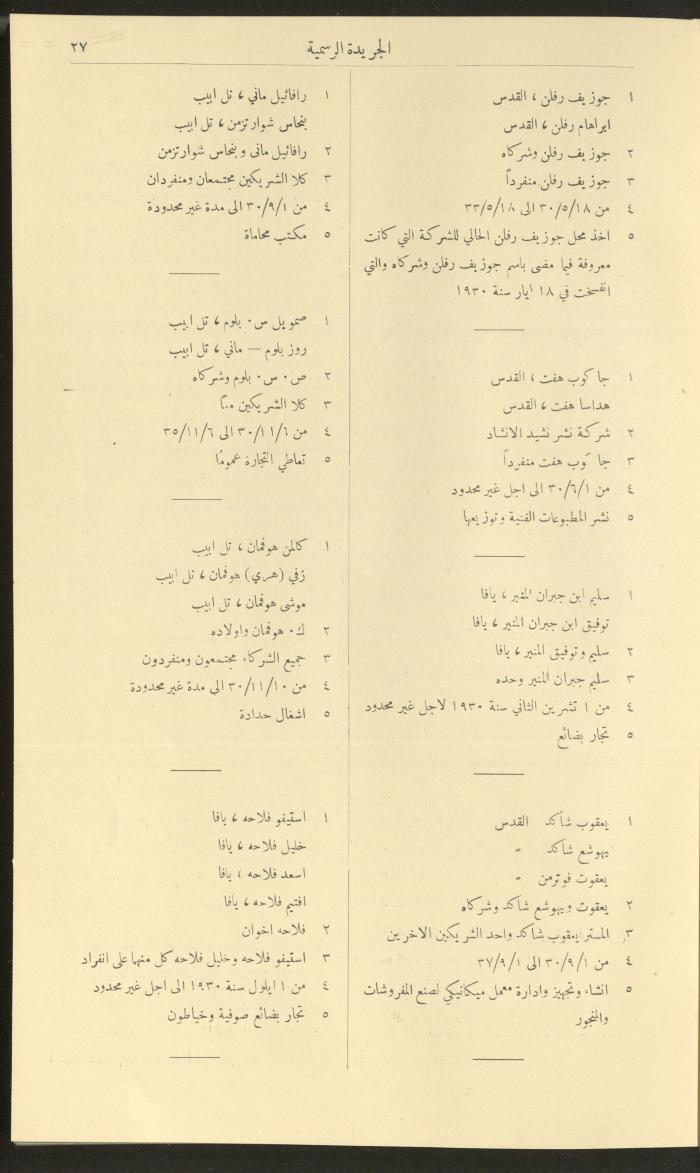 الجريدة الرسمية
٢٧
١ جوزيف رفلن ، القدس
ابراهام رفلن ، القدس
٢ جوزيف رفلن وشركاه
٣ جوزيف رفلن منفرداً
٤ من ٣٠/٥/١٨ الى ٣٣/٥/١٨
٥ اخذ محل جوزيف رفلن الحالي للشركة التي كانت
معروفة فيما مضى باسم جوزيف رفلن وشركاه والتي
انفسخت في ١٨ ايار سنة ١٩٣٠
١ جاكوب هفت ، القدس
هداسا هفت ، القدس
٢ شركة نشر نشيد الانشاد
٣ جاكوب هفت منفرداً
٤ من ٣٠/٦/١ الى اجل غير محدود
٥ نشر المطبوعات الفنية وتوزيعها
١ سليم ابن جبران المنير ، يافا
توفيق ابن جبران المنير ، يافا
٢ سليم وتوفيق المنير ، يافا
٣ سليم جبران المنير وحده
٤ من ١ تشرين الثاني سنة ١٩٣٠ لاجل غير محدود
٥ تجار بضائع
١ يعقوب شاكد القدس
يهوشع شاكد =
يعقوت فوترمن =
٢ يعقوت ويهوشع شاكد وشركاه
٣ المستر يعقوب شاكد واحد الشريكين الاخرين
٤ من ٣٠/٩/١ الى ٣٧/٩/١
٥ انشاء وتجهيز وادارة معمل ميكانيكي لصنع المفروشات
والمنجور
١ رافائيل ماني ، تل ابيب
بنحاس شوارتزمن ، تل ابيب
٢ رافائيل مانى وبنحاس شوارتزمن
٣ كلا الشريكين مجتمعان ومنفردان
٤ من ٣٠/٩/١ الى مدة غير محدودة
٥ مكتب محاماة
١ صمويل س٠ بلوم ، تل ابيب
روز بلوم — ماني ، تل ابيب
٢ ص٠ س٠ بلوم وشركاه
٣ كلا الشريكين معاً
٤ من ٣٠/١١/٦ الى ٣٥/١١/٦
٥ تعاطي التجارة عموماً
١ كالمن هوفمان ، تل ابيب
زفي (هري) هوفمان ، تل ابيب
موشى هوفمان ، تل ابيب
٢ ك٠ هوفمان واولاده
٣ جميع الشركاء مجتمعون ومنفردون
٤ من ٣٠/١١/١٠ الى مدة غير محدودة
٥ اشغال حدادة
١ استيفو فلاحه ، يافا
خليل فلاحه ، يافا
اسعد فلاحه ، يافا
افتيم فلاحه ، يافا
٢ فلاحه اخوان
٣ استيفو فلاحه وخليل فلاحه كل منهما على انفراد
٤ من ١ ايلول سنة ١٩٣٠ الى اجل غير محدود
٥ تجار بضائع صوفية وخياطون